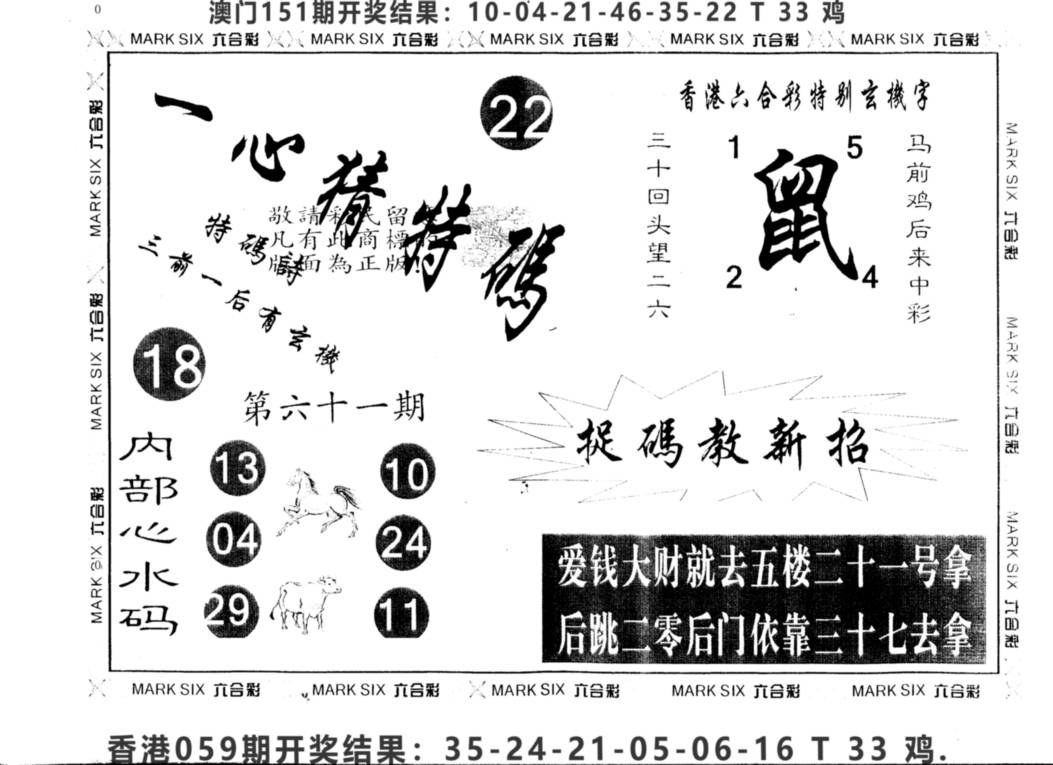 0
澳门151期开奖结果：10-04-21-46-35-22 T 33 鸡
MARK SIX 六合彩 MARK SIX 六合彩 MARK SIX 六合彩 MARK SIX 六合彩 MARK SIX 六合彩
MARK SIX 六合彩
MARK SIX 六合彩
MARK SIX 六合彩
一心猜特碼
22
敬請彩民留
凡有此商標的
版面為正版!
特碼詩
三前一后有玄機
18
第六十一期
香港六合彩特别玄機字
三十回头望二六
1 5
鼠
2 4
马前鸡后来中彩
内部心水码
13 10
04 24
29 11
捉碼教新招
爱钱大财就去五楼二十一号拿
后跳二零后门依靠三十七去拿
MARK SIX 六合彩
MARK SIX 六合彩
MARK SIX 六合彩
MARK SIX 六合彩 MARK SIX 六合彩 MARK SIX 六合彩 MARK SIX 六合彩 MARK SIX 六合彩
香港059期开奖结果：35-24-21-05-06-16 T 33 鸡.